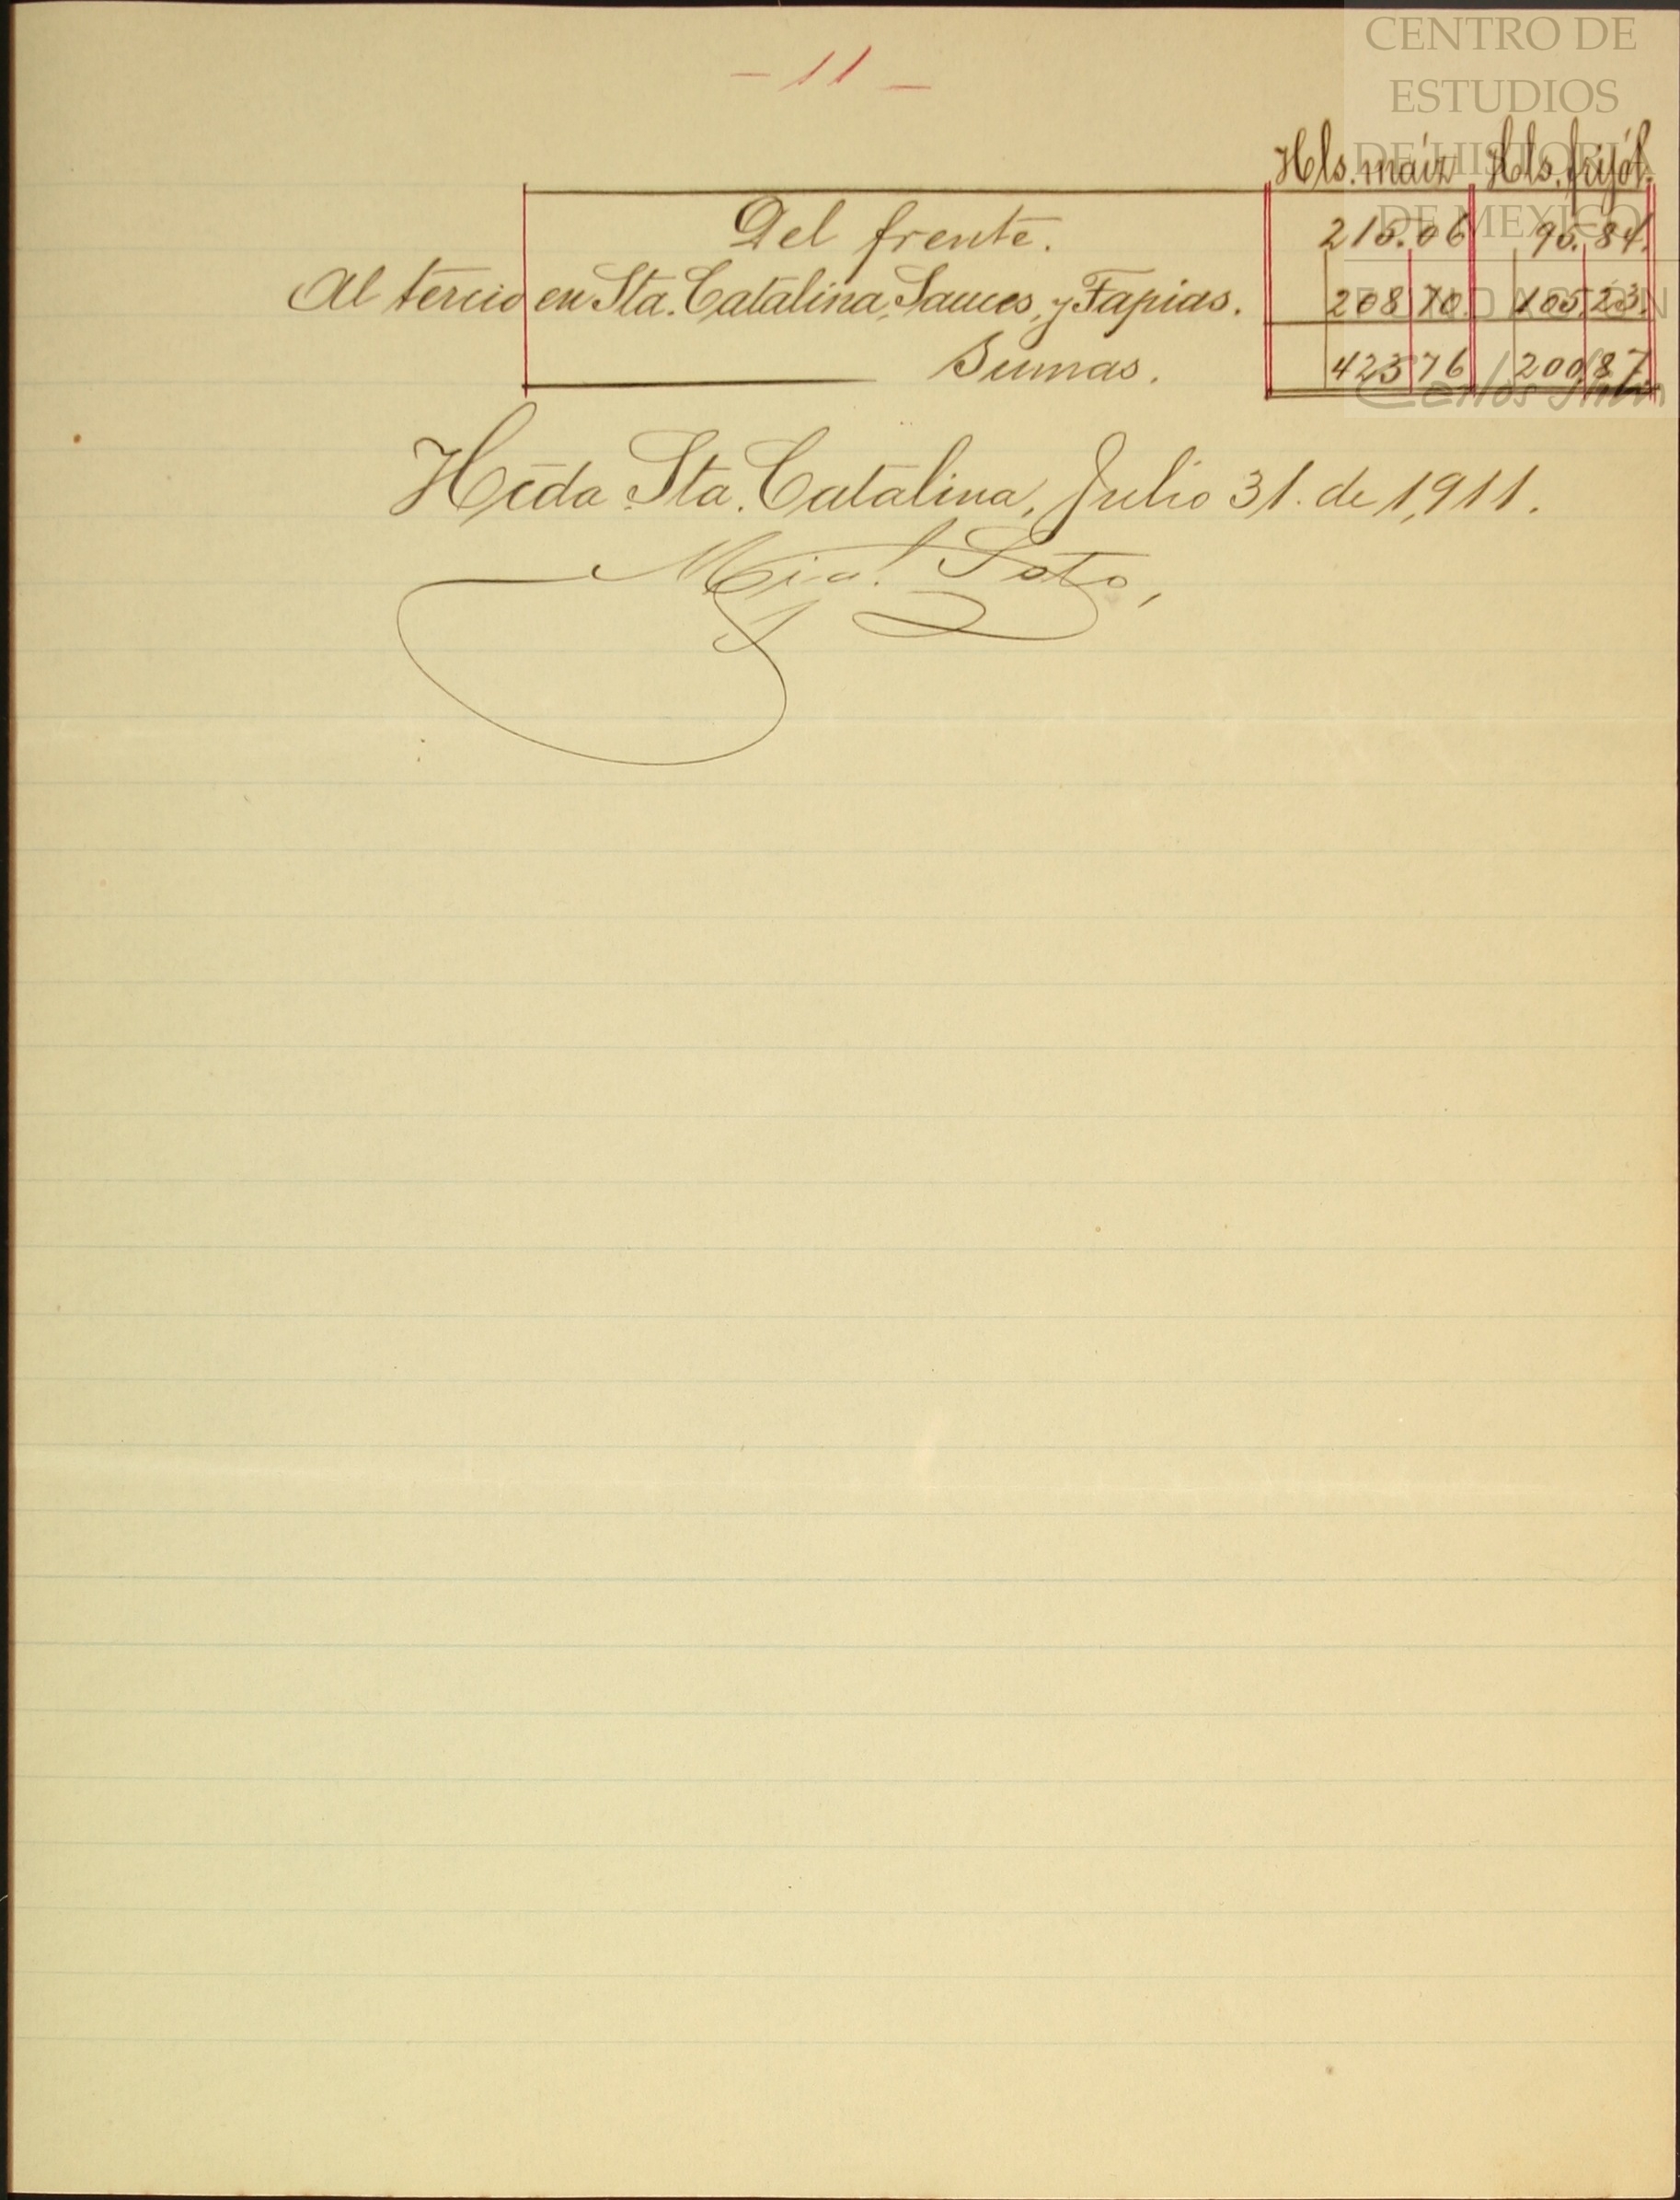 CENTRO DE
ESTUDIOS
DE HISTORIA
DE MEXICO
FUNDACIÓN
Carlos Slim
- 11 -
Hls. maíz Hls. frijól.
Del frente. 215.06 95.84.
Al tercio en Sta. Catalina, Sauces, y Tapias. 208 70. 105 23.
Sumas. 423 76 200 87
Hcda Sta. Catalina, Julio 31. de 1,911.
Migl. Soto,